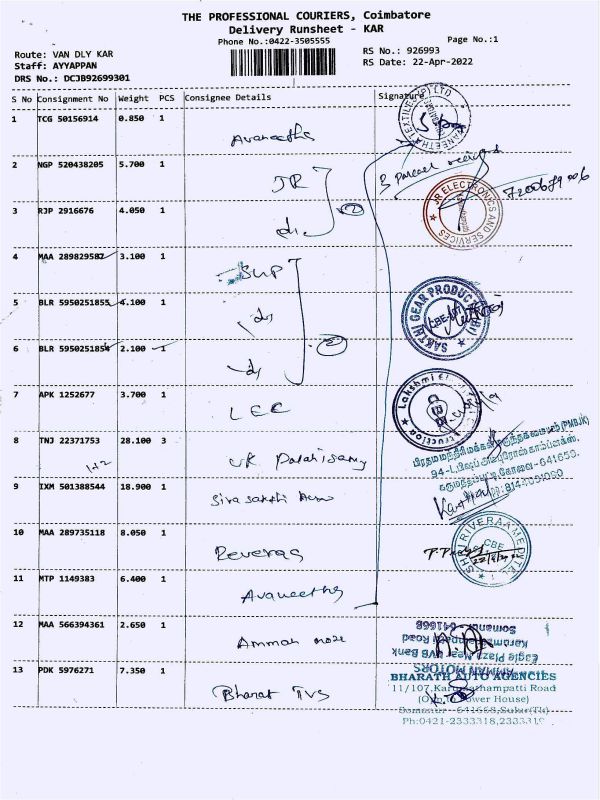 THE PROFESSIONAL COURIERS, Coimbatore
Delivery Runsheet - KAR
Phone No.:0422-3505555
Page No.:1
Route: VAN DLY KAR
Staff: AYYAPPAN
DRS No.: DCJB92699301
RS No.: 926993
RS Date: 22-Apr-2022
S No Consignment No Weight PCS Consignee Details Signature
1 TCG 50156914 0.850 1
Avaneetha
2 NGP 520438205 5.700 1
JR
3 parcel received
7200689006
JR ELECTRONICS AND SERVICES
3 RJP 2916676 4.050 1
do
2
4 MAA 289829587 3.100 1
SUP
SAKTHI GEAR PRODUCTS
5 BLR 5950251855 4.100 1
do
6 BLR 5950251854 2.100 1
do
2
7 APK 1252677 3.700 1
LEE
Lakshmi
8 TNJ 22371753 28.100 3
1+2
UK Palanisamy
(PMBJK)
9 IXM 501388544 18.900 1
Siva sakthi
10 MAA 289735118 8.050 1
Reveraa
SHRIVERAA
CBE
11 MTP 1149383 6.400 1
Avaneetha
12 MAA 566394361 2.650 1
Amman
AMMAN MOTORS
Eagle Plaza, Near VVB Bank
Road
Somanur - 641668
13 PDK 5976271 7.350 1
Bharat TVS
BHARATH AUTO AGENCIES
11/107, Karumathampatti Road
(Opp. Power House)
Somanur - 641668, Sulur(Tk)
Ph:0421-2333318,2333319